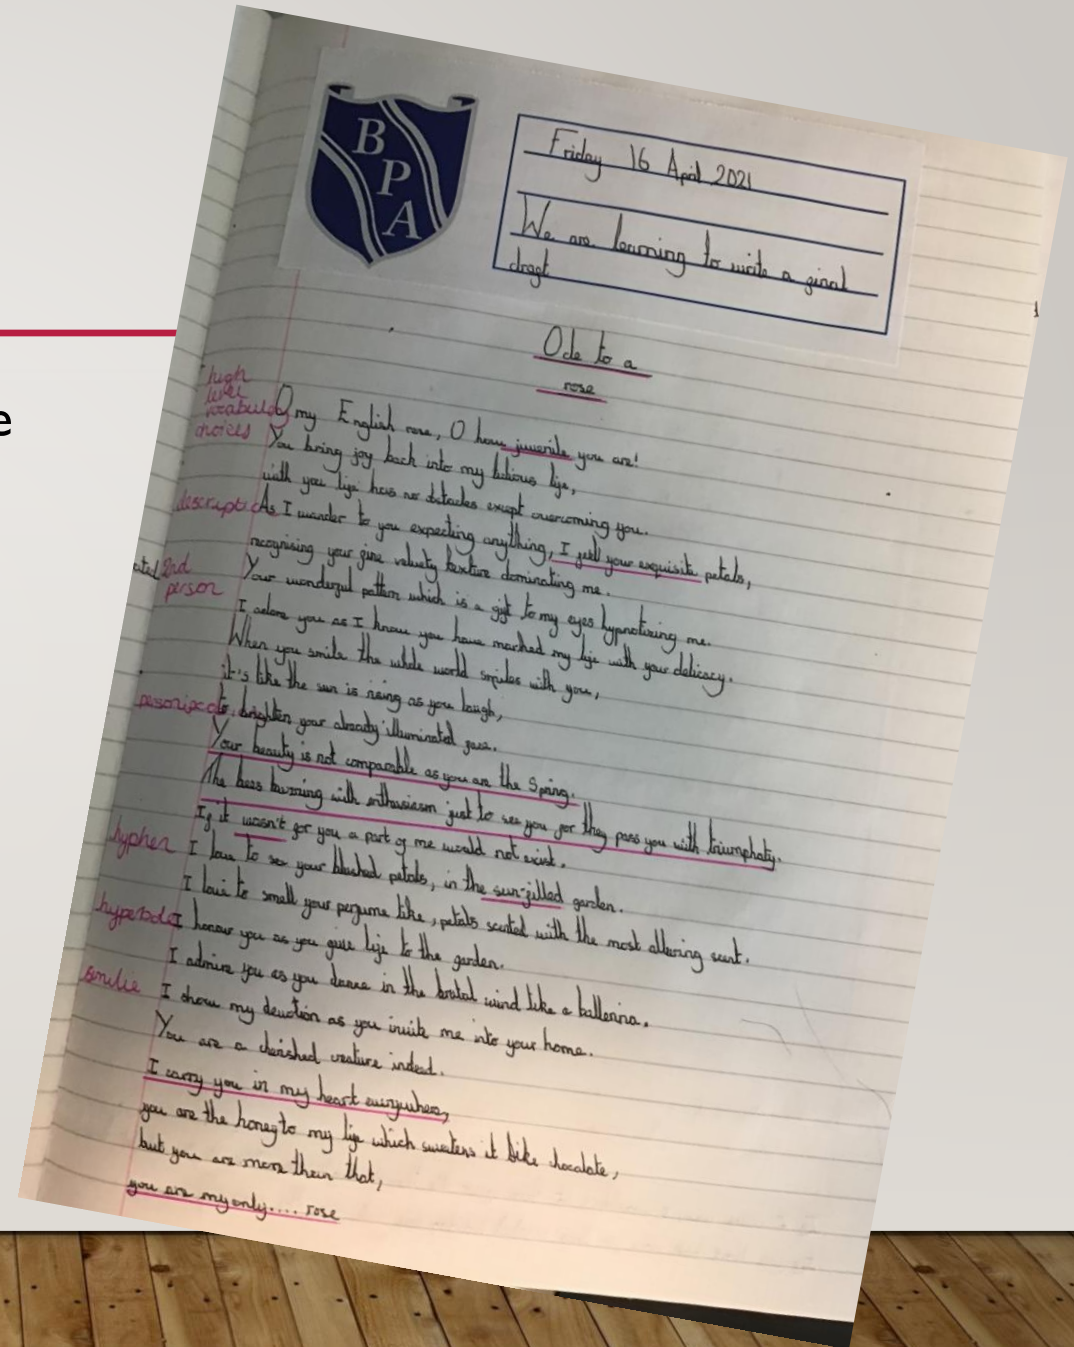 e
B
P
A
Friday 16 April 2021
We are learning to write a final
draft
Ode to a
rose
high
level
vocabulary
choices
O my English rose, O how juvenile you are!
You bring joy back into my tedious life,
with you life has no obstacles except overcoming you.
description
As I wander to you expecting anything, I feel your exquisite petals,
recognising your fine velvety texture dominating me.
2nd
person
Your wonderful pattern which is a gift to my eyes hypnotizing me.
I adore you as I know you have marked my life with your delicacy.
When you smile the whole world smiles with you,
it's like the sun is rising as you laugh,
to brighten your already illuminated face.
Your beauty is not comparable as you are the Spring.
The bees buzzing with enthusiasm just to see you for they pass you with triumphaty.
If it wasn't for you a part of me would not exist.
hyphen
I love to see your blushed petals, in the sun-filled garden.
I love to smell your perfume like, petals scented with the most alluring scent.
hyperbole
I honour you as you give life to the garden.
I admire you as you dance in the brutal wind like a ballerina.
similie
I show my devotion as you invite me into your home.
You are a cherished creature indeed.
I carry you in my heart everywhere,
you are the honey to my life which sweetens it like chocolate,
but you are more than that,
you are my only.... rose